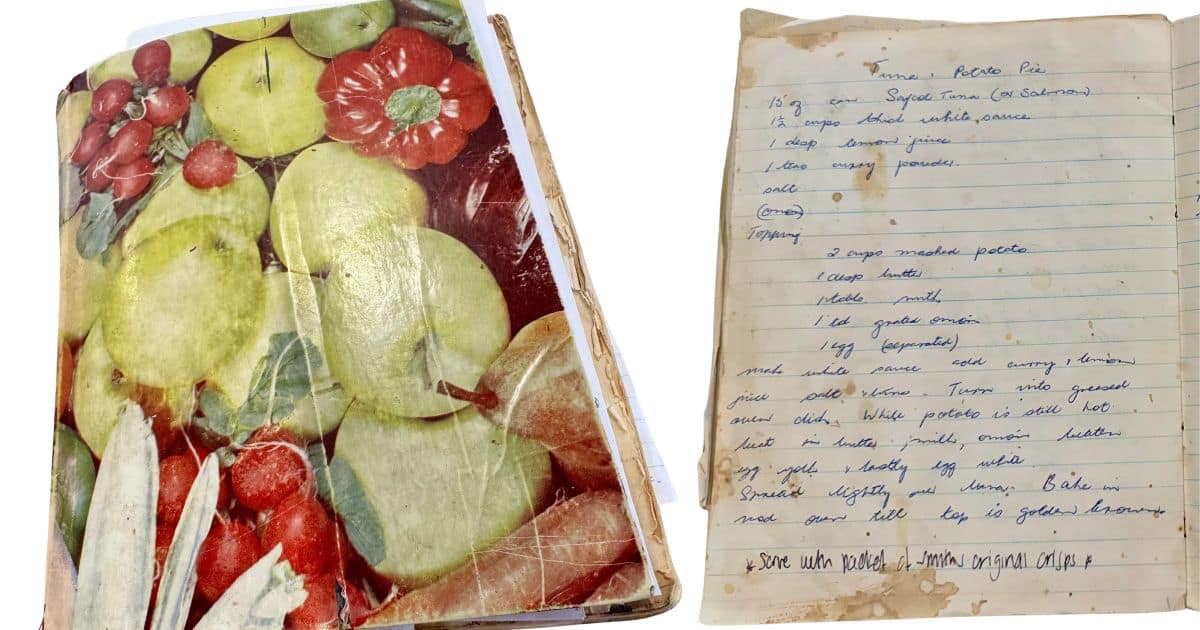 Tuna & Potato Pie
15 oz can Safcol Tuna (or Salmon)
1½ cups thick white sauce
1 desp lemon juice
1 teas curry powder
salt
Topping
2 cups mashed potato
1 desp butter
1 table milk
1 grated onion
1 egg (separated)
make white sauce add curry, lemon
juice salt & tuna. Turn into greased
oven dish. While potato is still hot
beat in butter, milk, onion beaten
egg yolk & lastly egg white.
Spread lightly over tuna. Bake in
mod oven till top is golden brown.
*Serve with packet of smiths original crisps*